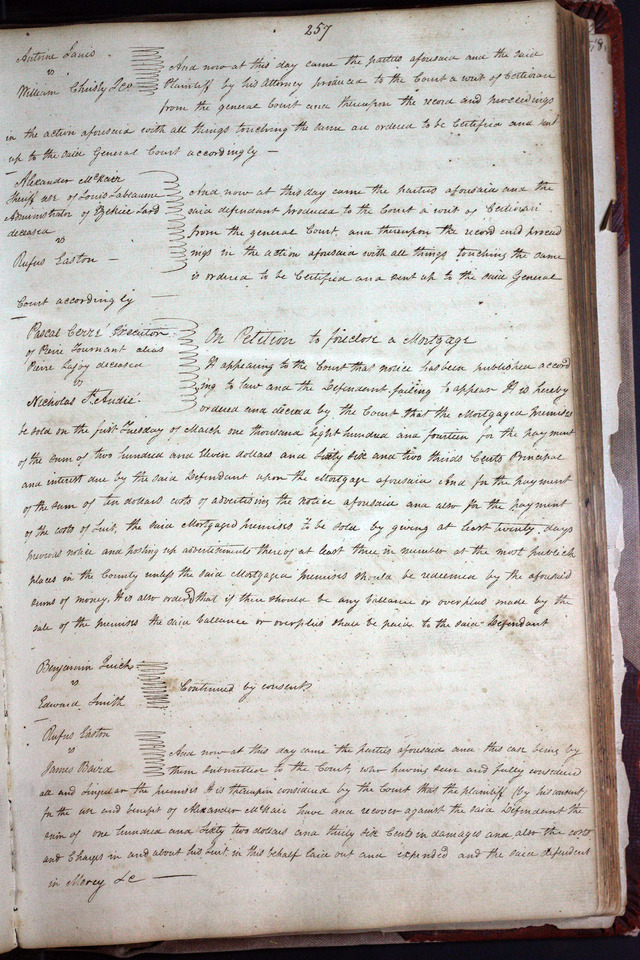 257
Antoine Janis
vs
William Chisby &Co
And now at this day came the parties aforesaid and the said
Plaintiff by his Attorney produced to the Court a writ of Certiorari
from the general Court and thereupon the record and proceedings
in the action aforesaid with all things touching the same are ordered to be Certified and sent
up to the said General Court accordingly —
Alexander McNair
Sheriff use of Louis Labeaume
Administrator of Ezekiel Lard
deceased
vs
Rufus Easton —
And now at this day came the parties aforesaid and the
said defendant produced to the Court a writ of Certiorari
from the general Court, and thereupon the record and proceed
ings in the action aforesaid with all things touching the same
is ordered to be Certified and sent up to the said General
Court accordingly
Pascal Cerré Executor
of Pierre Tournant alias
Pierre Lajoy deceased
vs
Nicholas F. Andie
On Petition to foreclose a Mortgage
It appearing to the Court that notice has been published accord
ing to law and the Defendent failing to appear It is hereby
ordered and decreed by the Court that the Mortgaged premises
be sold on the first Tuesday of March one thousand Eight hundred and fourteen for the payment
of the sum of two hundred and Eleven dollars and Sixty Six and two thirds Cents Principal
and interest due by the said Defendant upon the Mortgage aforesaid and for the payment
of the sum of ten dollars costs of advertising the notice aforesaid and also for the payment
of the costs of Suit, the said Mortgaged premises to be sold by giving at least twenty days
previous notice and posting up advertisements thereof at least three in number at the most publick
places in the County unless the said Mortgaged premises should be redeemed by the aforesaid
sums of money. It is also ordered that if there should be any ballance or overplus made by the
sale of the premises the said ballance or overplus shall be paid to the said Defendant
Benjamin Quick
vs
Edward Smith
Continued by consent
Rufus Easton
vs
James Baird
And now at this day came the parties aforesaid and this case being by
them submitted to the Court, was having seen and fully considered
all and singular the premises It is thereupon considered by the Court that the plaintiff (by his consent)
for the use and benefit of Alexander McNair have and recover against the said Defendent the
sum of one hundred and Sixty two dollars and thirty Six Cents in damages and also the costs
and Charges in and about his suit in this behalf laid out and expended and the said defendent
in Mercy &c —